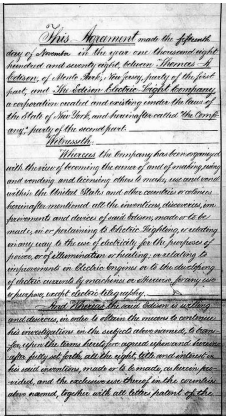 This Agreement made the fifteenth
day of November in the year one thousand eight
hundred and seventy eight, between Thomas A
Edison, of Menlo Park, New Jersey, party of the first
part, and The Edison Electric Light Company,
a corporation created and existing under the laws of
the State of New York, and hereinafter called "the Comp-
any," party of the second part.
Witnesseth.
Whereas the Company has been organized
with the view of becoming the owner of and of making, using
and vending and licensing others to make, use and vend
within the United States and other countries or colonies
hereinafter mentioned all the inventions, discoveries, im-
provements and devices of said Edison, made or to be
made, in or pertaining to Electric Lighting, or relating
in any way to the use of electricity for the purposes of
power, or of illumination or heating, or relating to
improvements in Electric Engines or to the developing
of electric currents by machinery or otherwise, for any use
or purpose, except electric telegraphy.
And Whereas the said Edison is willing
and desirous, in order to obtain the means to continue
his investigations in the subject above named, to trans-
fer, upon the terms hereto agreed upon and herein-
after fully set forth, all the right, title and interest in
his said inventions, made or to be made, as herein pro-
vided, and the exclusive use thereof in the countries
above named, together with all letters patent of the